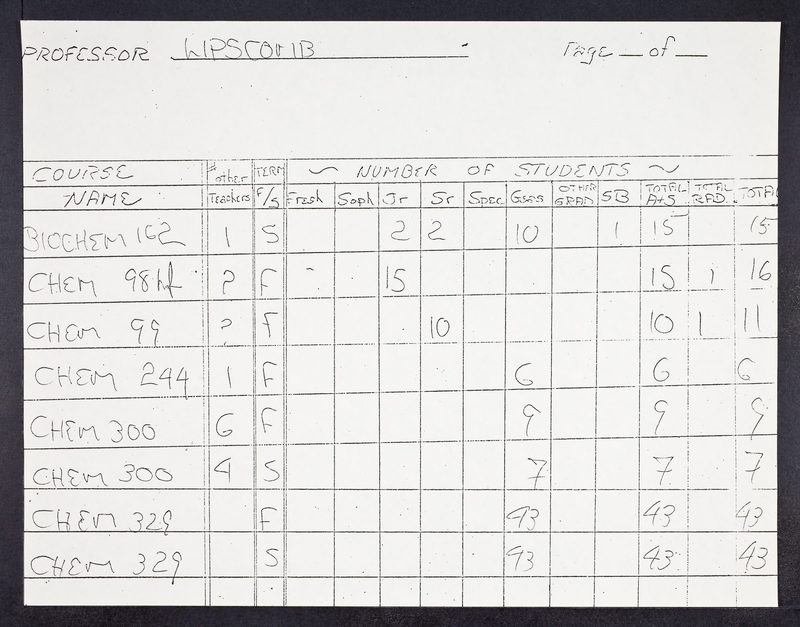 PROFESSOR LIPSCOMB Page __ of __
COURSE # other TERM ~ NUMBER OF STUDENTS ~
NAME Teachers F/S Fresh Soph Jr Sr Spec Gsas OTHER GRAD SB TOTAL A+S TOTAL RAD. TOTAL
BIOCHEM 162 1 S 2 2 10 1 15 15
CHEM 98hf ? F 15 15 1 16
CHEM 99 ? F 10 10 1 11
CHEM 244 1 F 6 6 6
CHEM 300 6 F 9 9 9
CHEM 300 4 S 7 7 7
CHEM 329 F 43 43 43
CHEM 329 S 43 43 43